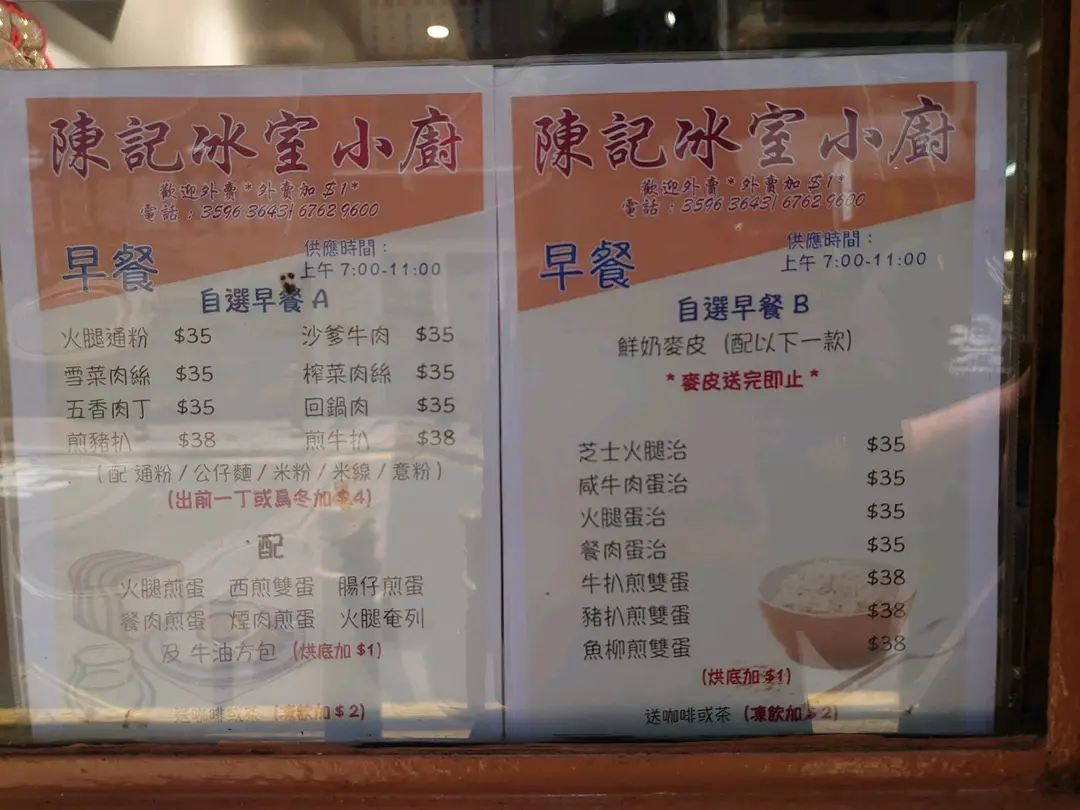 陳記冰室小廚
歡迎外賣*外賣加$1*
電話:3596 3643| 6762 9600
早餐
供應時間:
上午 7:00-11:00
自選早餐 A
火腿通粉 $35 沙爹牛肉 $35
雪菜肉絲 $35 榨菜肉絲 $35
五香肉丁 $35 回鍋肉 $35
煎豬扒 $38 煎牛扒 $38
(配 通粉/公仔麵/米粉/米線/意粉)
(出前一丁或烏冬加$4)
配
火腿煎蛋 西煎雙蛋 腸仔煎蛋
餐肉煎蛋 煙肉煎蛋 火腿奄列
及 牛油方包 (烘底加 $1)
送咖啡或茶 (凍飲加$2)
陳記冰室小廚
歡迎外賣*外賣加$1*
電話:3596 3643| 6762 9600
早餐
供應時間:
上午 7:00-11:00
自選早餐 B
鮮奶麥皮 (配以下一款)
*麥皮送完即止*
芝士火腿治 $35
咸牛肉蛋治 $35
火腿蛋治 $35
餐肉蛋治 $35
牛扒煎雙蛋 $38
豬扒煎雙蛋 $38
魚柳煎雙蛋 $38
(烘底加$1)
送咖啡或茶 (凍飲加$2)